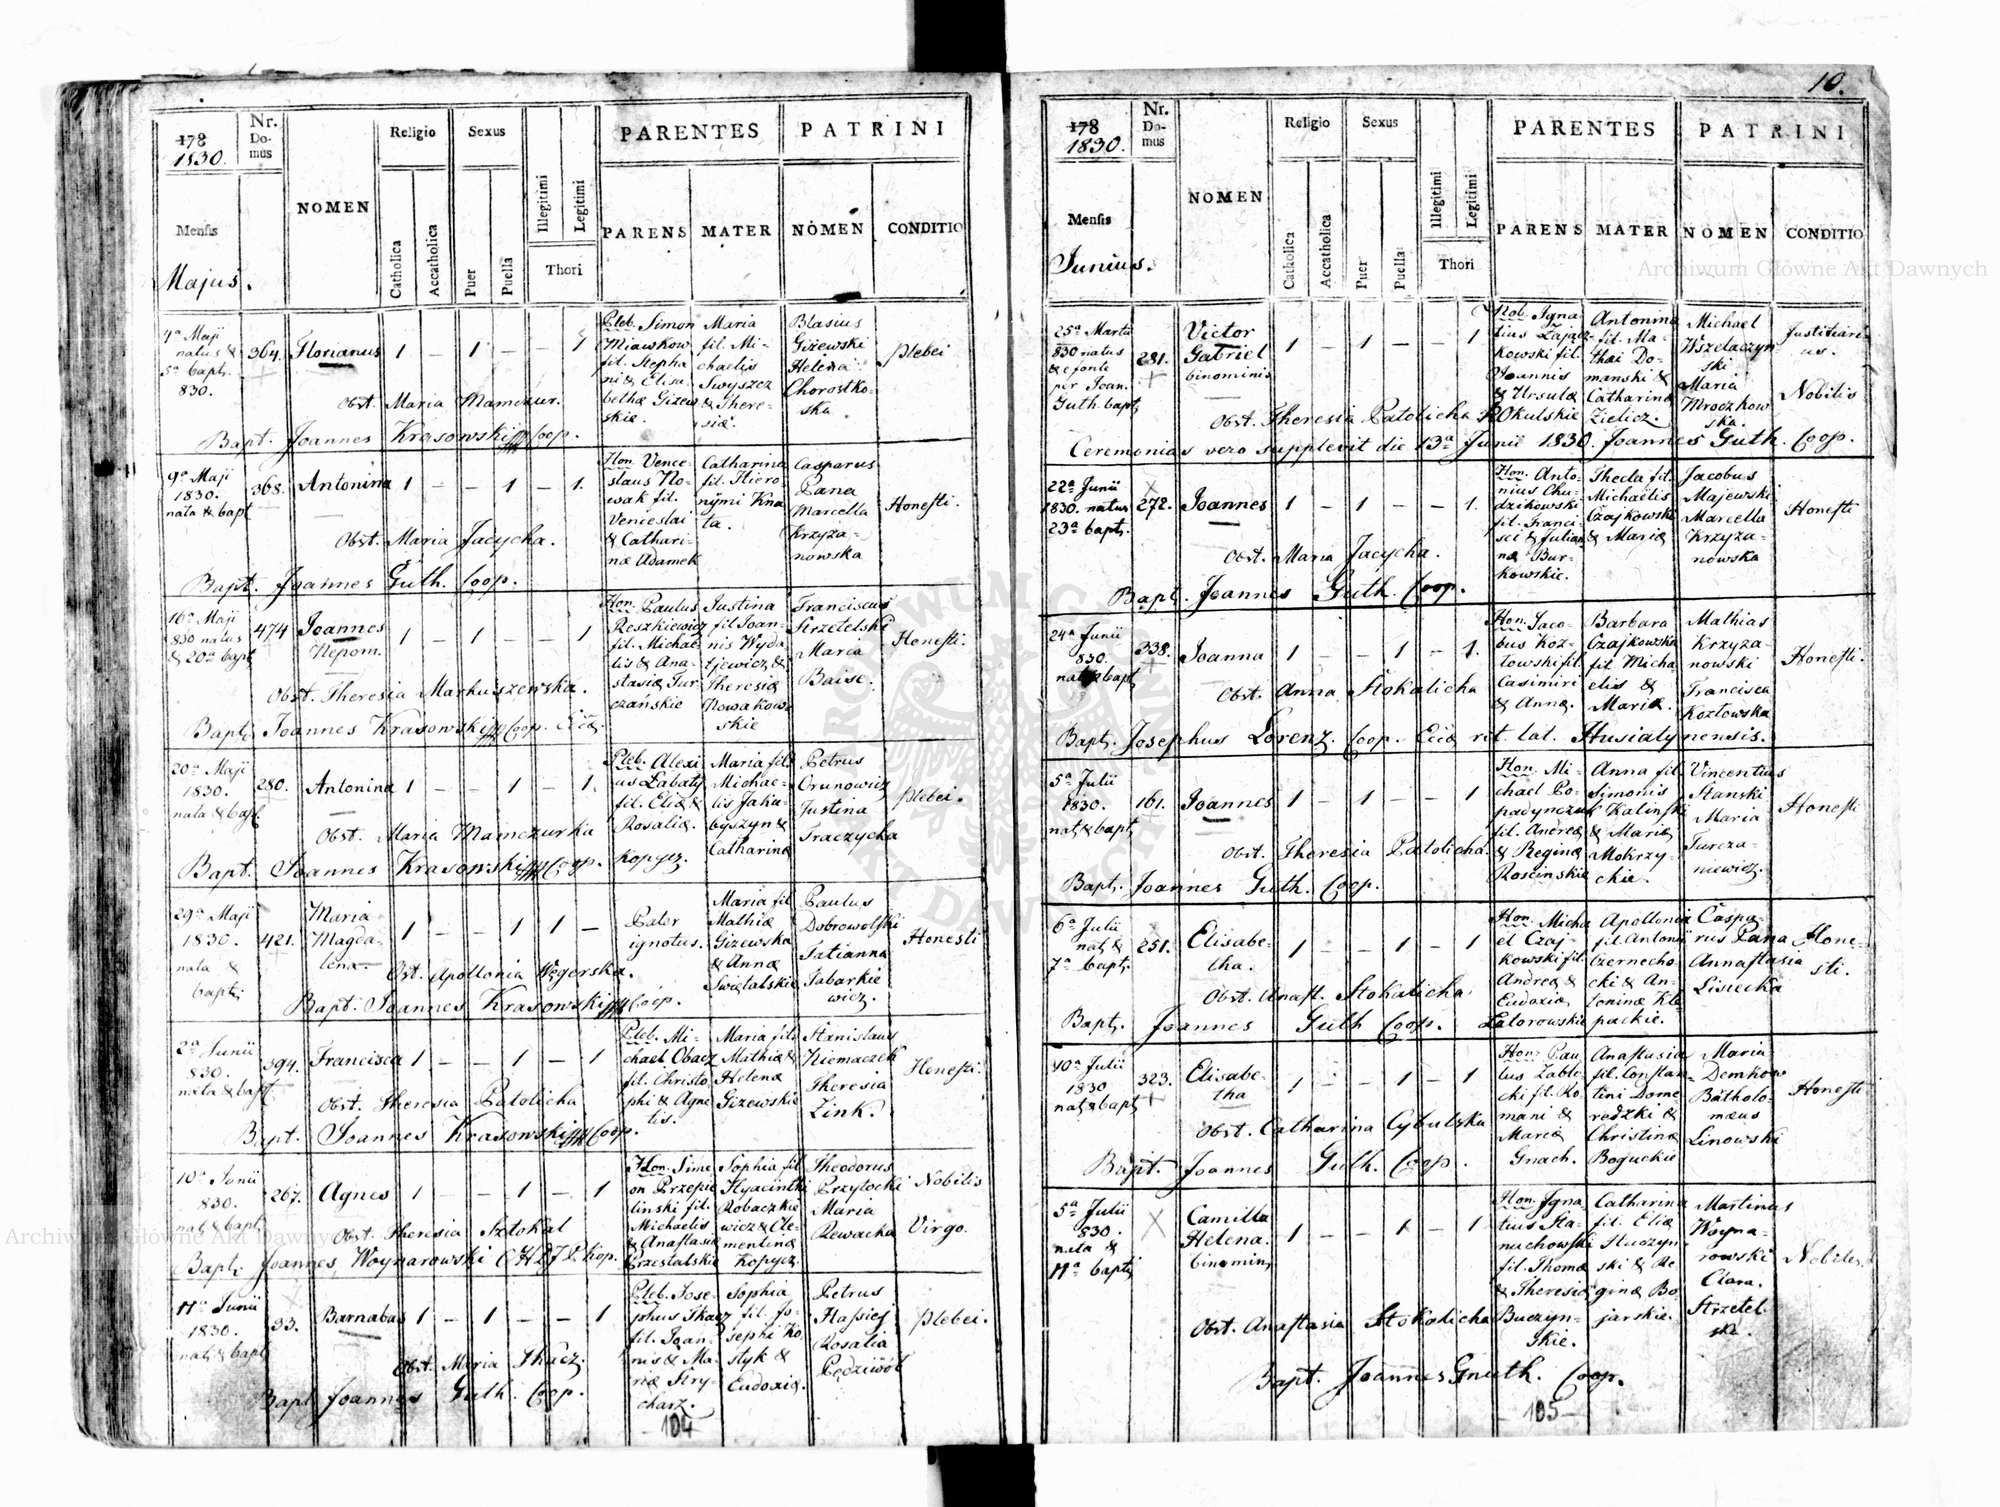 178
1830.
Nr.
Do-
mus
NOMEN
Religio
Sexus
Illegitimi
Legitimi
Thori
PARENTES
PATRINI
Mensis
Majus.
Catholica
Accatholica
Puer
Puella
PARENS
MATER
NOMEN
CONDITIO
4ª Maji
natus &
5ª bapt.
830.
364.
Florianus
1 – 1 – – 1
Pleb. Simon
Miawkow
fil. Stepha
ni & Elisa
bethæ Gizew
skie.
Maria
fil. Mi-
chaelis
Swyszcz
& There-
siæ.
Blasius
Giżewski
Helena
Chorostko-
ska.
plebei
Obst. Maria Mamczur.
Bapt. Joannes Krasowski Coop.
9ª Maji
1830.
nata & bapt
368.
Antonina
1 – – 1 – 1.
Hon. Vence-
slaus No-
wak fil.
Venceslai
& Cathari-
næ Adamek
Catharina
fil. Hiero-
nymi Kna
ta.
Casparus
Pana
Marcella
Krzyża-
nowska
Honesti.
Obst. Maria Jacycha.
Bapt. Joannes Guth. Coop.
16ª Maji
830 natus
& 20ª bapt
474
Joannes
Nepom.
1 – 1 – – 1
Hon. Paulus
Reszkiewicz
fil. Michae
lis & Ana-
stasiæ Tur-
czańskie
Justina
fil Joan-
nis Wyda
tjewicz &
Theresiæ
Nowakow
skie
Franciscus
Strzetelski
Maria
Baise.
Honesti.
Obst. Theresia Markuszewska.
Bapt. Joannes Krasowski Coop. Eccæ.
20ª Maji
1830.
nata & bapt
280.
Antonina
1 – – 1 – 1.
Pleb. Alexi
us Łabaty
fil. Eliæ &
Rosaliæ.
Kopycz.
Maria fil
Michae-
lis Jaku-
byszyn &
Catharinæ
Petrus
Grunowicz
Justina
Traczycha
plebei.
Obst. Maria Mamczurka
Bapt. Joannes Krasowski Coop.
29ª Maji
1830.
nata &
bapt.
421.
Maria
Magda-
lena.
1 – – 1 1 –
Pater
ignotus.
Maria fil
Mathiæ
Gizewska
& Annæ
Swiętalskie
Paulus
Dobrowolski
Tatianna
Tabarkie
wicz.
Honesti
Ost. Apollonia Węgerska.
Bapt. Joannes Krasowski Coop.
2ª Junii
830.
nata & bapt
394.
Francisca
1 – – 1 – 1
Pleb. Mi-
chael Obacz
fil. Christo
phi & Agne
tis.
Maria fil
Mathiæ &
Helenæ
Gizewskie
Stanislaus
Niemaczek
Theresia
Zink.
Honesti.
Obst. Theresia Patolicha
Bapt. Joannes Krasowski Coop.
10ª Junii
830.
nat. & bapt.
267.
Agnes
1 – – 1 – 1
Hon. Sime
on Przepie
linski fil.
Michaelis
& Anastasiæ
Przeslalskie
Sophia fil
Hyacinthi
Robaczkie
wicz & Cle-
mentinæ
Kopycz.
Theodorus
Przyłocki
Maria
Rewacka
Nobilis
Virgo.
Obst. Theresia Sztokal
Bapt. Joannes Woynarowski
11ª Junii
1830.
nat. & bapt
93.
Barnabas
1 – 1 – – 1
Pleb. Jose-
phus Tkacz
fil. Joan-
nis & Ma-
riæ Hry-
charz.
Sophia
fil. Jo-
sephi Ko
styk &
Eudoxiæ.
Petrus
Hassiej
Rosalia
Pędziwół
plebei.
Obst. Maria Tkacz.
Bapt. Joannes Guth. Coop.
104
10.
178
1830.
Nr.
Do-
mus
NOMEN
Religio
Sexus
Illegitimi
Legitimi
Thori
PARENTES
PATRINI
Mensis
Junius.
Catholica
Accatholica
Puer
Puella
PARENS
MATER
NOMEN
CONDITIO
25ª Martii
830 natus
& e fonte
per Joan.
Guth bapt.
281.
Victor
Gabriel
binominis
1 – 1 – – 1
Nob. Igna
tius Zając-
kowski fil.
Joannis
& Ursulæ
Okulskie
Antonina
fil. Ma-
thai Do-
manski &
Catharinæ
Zielicz.
Michael
Wszelaczyn
ski
Maria
Mroczkow
ska.
Justitiari
us.
Nobilis
Obst. Theresia Patolicha
Ceremonias vero supplevit die 13ª Junii 1830. Joannes Guth. Coop.
22ª Junii
1830. natus
23ª bapt.
272.
Joannes
1 – 1 – – 1.
Hon. Anto-
nius Chu-
dzikowski
fil. Franci-
sci & Julian
næ Bur-
kowskie.
Thecla fil.
Michaelis
Czajkowski
& Mariæ
Jacobus
Majewski
Marcella
Krzyża-
nowska
Honesti
Obst. Maria Jacycha.
Bapt. Joannes Guth. Coop.
24ª Junii
830.
nat. & bapt
338.
Joanna
1 – – 1 – 1.
Hon. Jaco-
bus Koz-
łowski fil.
Casimiri
& Annæ.
Barbara
Czajkowska
fil. Micha
elis &
Mariæ.
Mathias
Krzyża-
nowski
Francisca
Kozłowska
Honesti.
Obst. Anna Stokalicha
Bapt. Josephus Lorenz. Coop. Eccæ rit. lat. Husiatynensis.
5ª Julii
1830.
nat. & bapt.
161.
Joannes
1 – 1 – – 1
Hon. Mi-
chael Po-
padynczuk
fil. Andreæ
& Reginæ
Roscinskie
Anna fil
Simonis
Kaliński
& Mariæ
Mokrzy-
ckie.
Vincentius
Stanski
Maria
Turcza-
niewicz.
Honesti
Obst. Theresia Patolicha.
Bapt. Joannes Guth. Coop.
6ª Julii
nat. &
7ª bapt.
251.
Elisabe-
tha.
1 – – 1 – 1
Hon. Micha
el Czaj-
kowski fil.
Andreæ &
Eudoxiæ
Latorowskie
Apollonia
fil. Antonii
Czernecho
cki & An-
toninæ Kle
packie.
Caspa-
rus Pana
Annastasia
Lisiecka
Hone-
sti.
Obst. Anast. Stokalicha
Bapt. Joannes Guth Coop.
10ª Julii
1830
nat. & bapt
323.
Elisabe-
tha
1 – – 1 – 1
Hon. Pau
lus Zabło
cki fil. Ro
mani &
Mariæ
Gnach.
Anastasia
fil. Constan-
tini Dome-
redzki &
Christinæ
Boguckie
Maria
Demkow
Bartholo-
mæus
Linowski
Honesti
Obst. Catharina Cybulska
Bapt. Joannes Guth. Coop.
5ª Julii
830.
nata &
11ª bapt.
Camilla
Helena.
binomin.
1 – – 1 – 1
Hon. Igna
tius Sta-
nuchowski
fil. Thomæ
& Theresiæ
Buczyn-
skie.
Catharina
fil. Eliæ
Huczyn-
ski & Re
ginæ Bo
jarskie.
Martinus
Woyna-
rowski
Clara.
Strzetel-
ska.
Nobiles.
Obst. Anastasia Stokalicha
Bapt. Joannes Gnuth. Coop.
105
Archiwum Główne Akt Dawnych
Archiwum Główne Akt Dawnych
ARCHIWUM GŁÓWNE AKT DAWNYCH